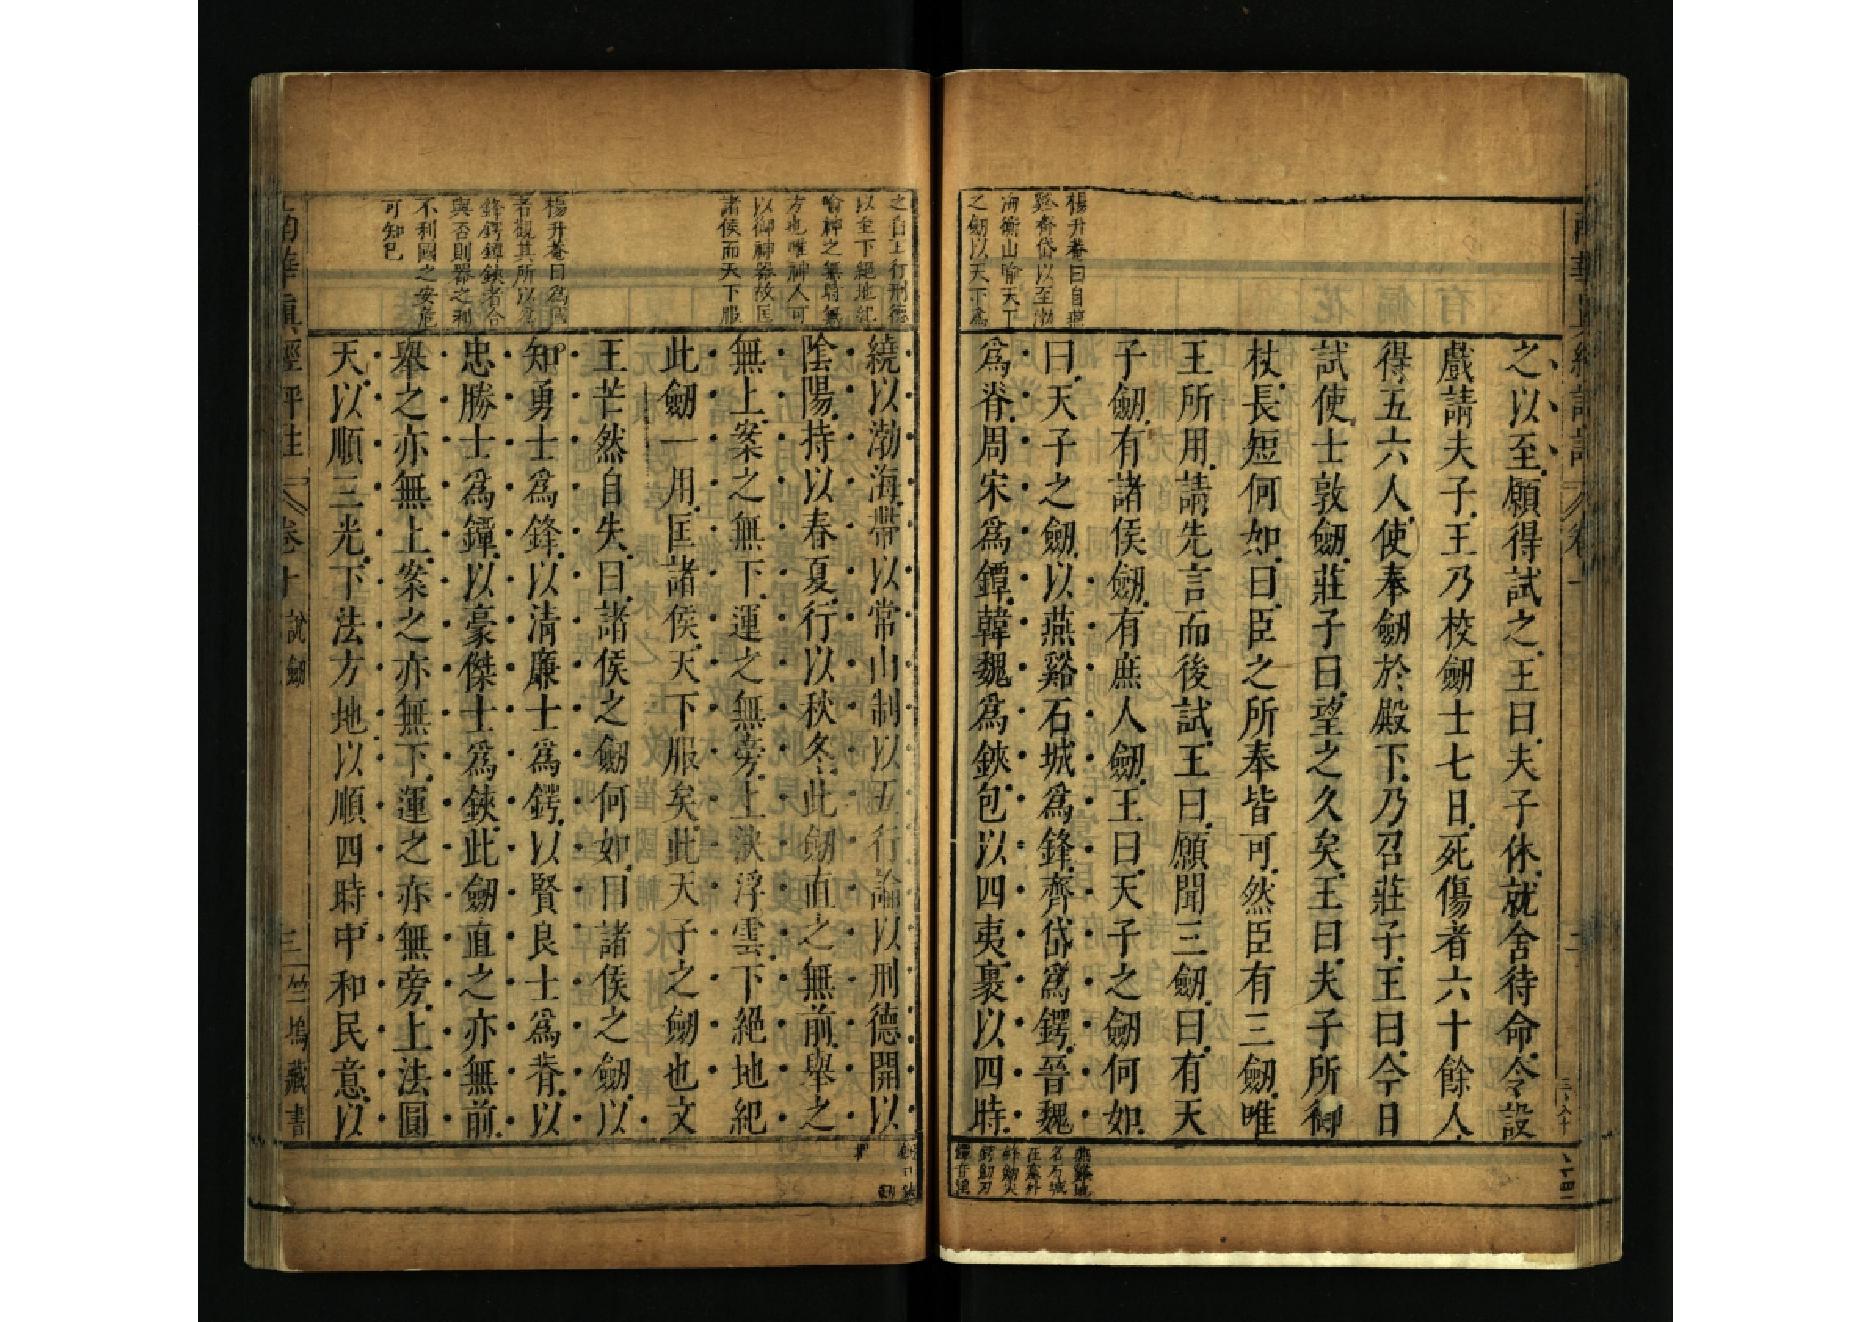 楊升菴曰自燕
谿齊岱以至渤
海衡山喻天下
之劒以天下爲
之以至願得試之王曰夫子休就舍待命令設
戲請夫子王乃校劒士七日死傷者六十餘人
得五六人使奉劒於殿下乃召莊子王曰今日
試使士敦劒莊子曰望之久矣王曰夫子所御
杖長短何如曰臣之所奉皆可然臣有三劒唯
王所用請先言而後試王曰願聞三劒曰有天
子劒有諸侯劒有庶人劒王曰天子之劒何如
曰天子之劒以燕谿石城爲鋒齊岱爲鍔晉魏
爲脊周宋爲鐔韓魏爲鋏包以四夷裹以四時
燕谿地
名石城
在塞外
鋒劒尖
鍔劒刃
以至下絕地紀
喻神之無前無
方也唯神人可
以御神器故匡
諸侯而天下服
楊升菴曰爲國
者觀其所以爲
鋒鍔鐔鋏者合
與否則器之利
不利國之安危
可知已
繞以渤海帶以常山制以五行論以刑德開以
陰陽持以春夏行以秋冬此劒直之無前舉之
無上案之無下運之無旁上決浮雲下絕地紀
此劒一用匡諸侯天下服矣此天子之劒也文
王芒然自失曰諸侯之劒何如曰諸侯之劒以
知勇士爲鋒以清廉士爲鍔以賢良士爲脊以
忠勝士爲鐔以豪傑士爲鋏此劒直之亦無前
舉之亦無上案之亦無下運之亦無旁上法圓
天以順三光下法方地以順四時中和民意以
南華真經評註 卷十 說劒 三 竺塢藏書